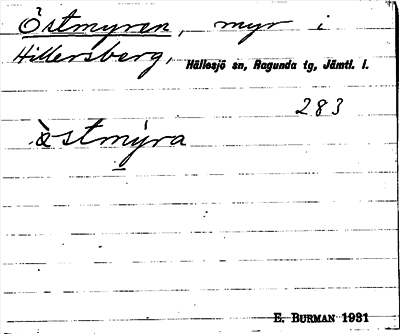 Östmyren, myr i
Hillersberg, Hällesjö sn, Ragunda tg, Jämtl. l.
283
östmy̱ra
E. BURMAN 1931